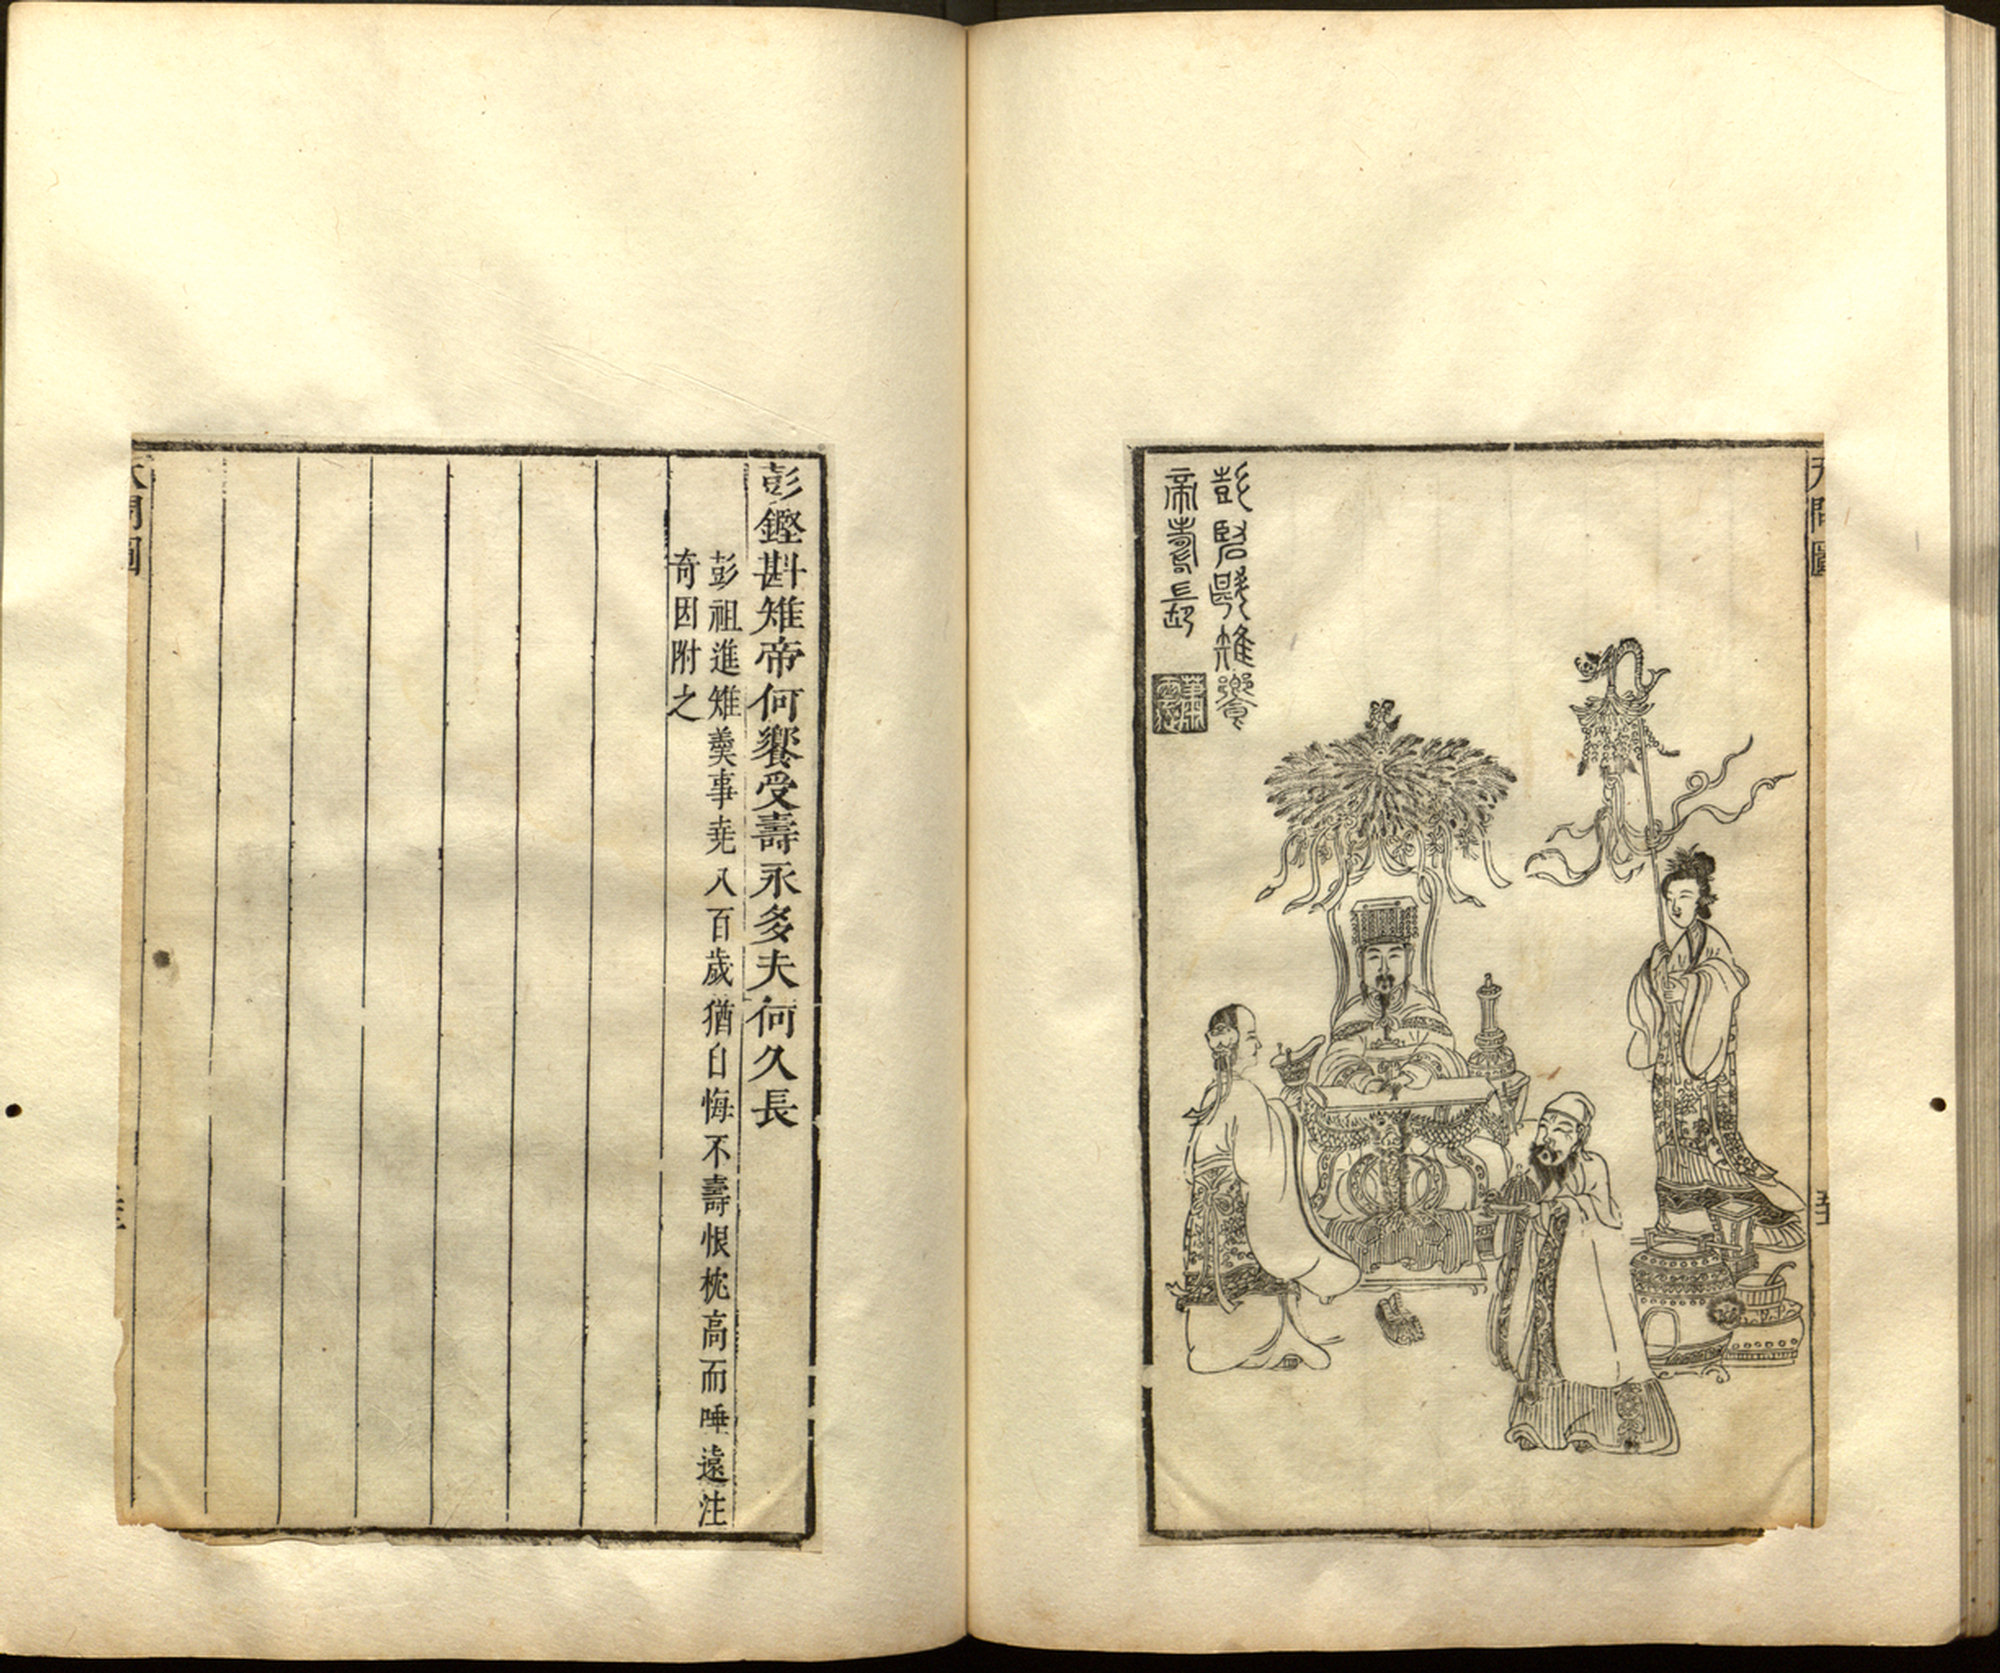 天問圖
彭斟雉饗
帝壽長
蕭雲從
彭鏗斟雉帝何饗受壽永多夫何久長
彭祖進雉羹事堯八百歲猶自悔不壽恨枕高而唾遠注
奇因附之
天問圖